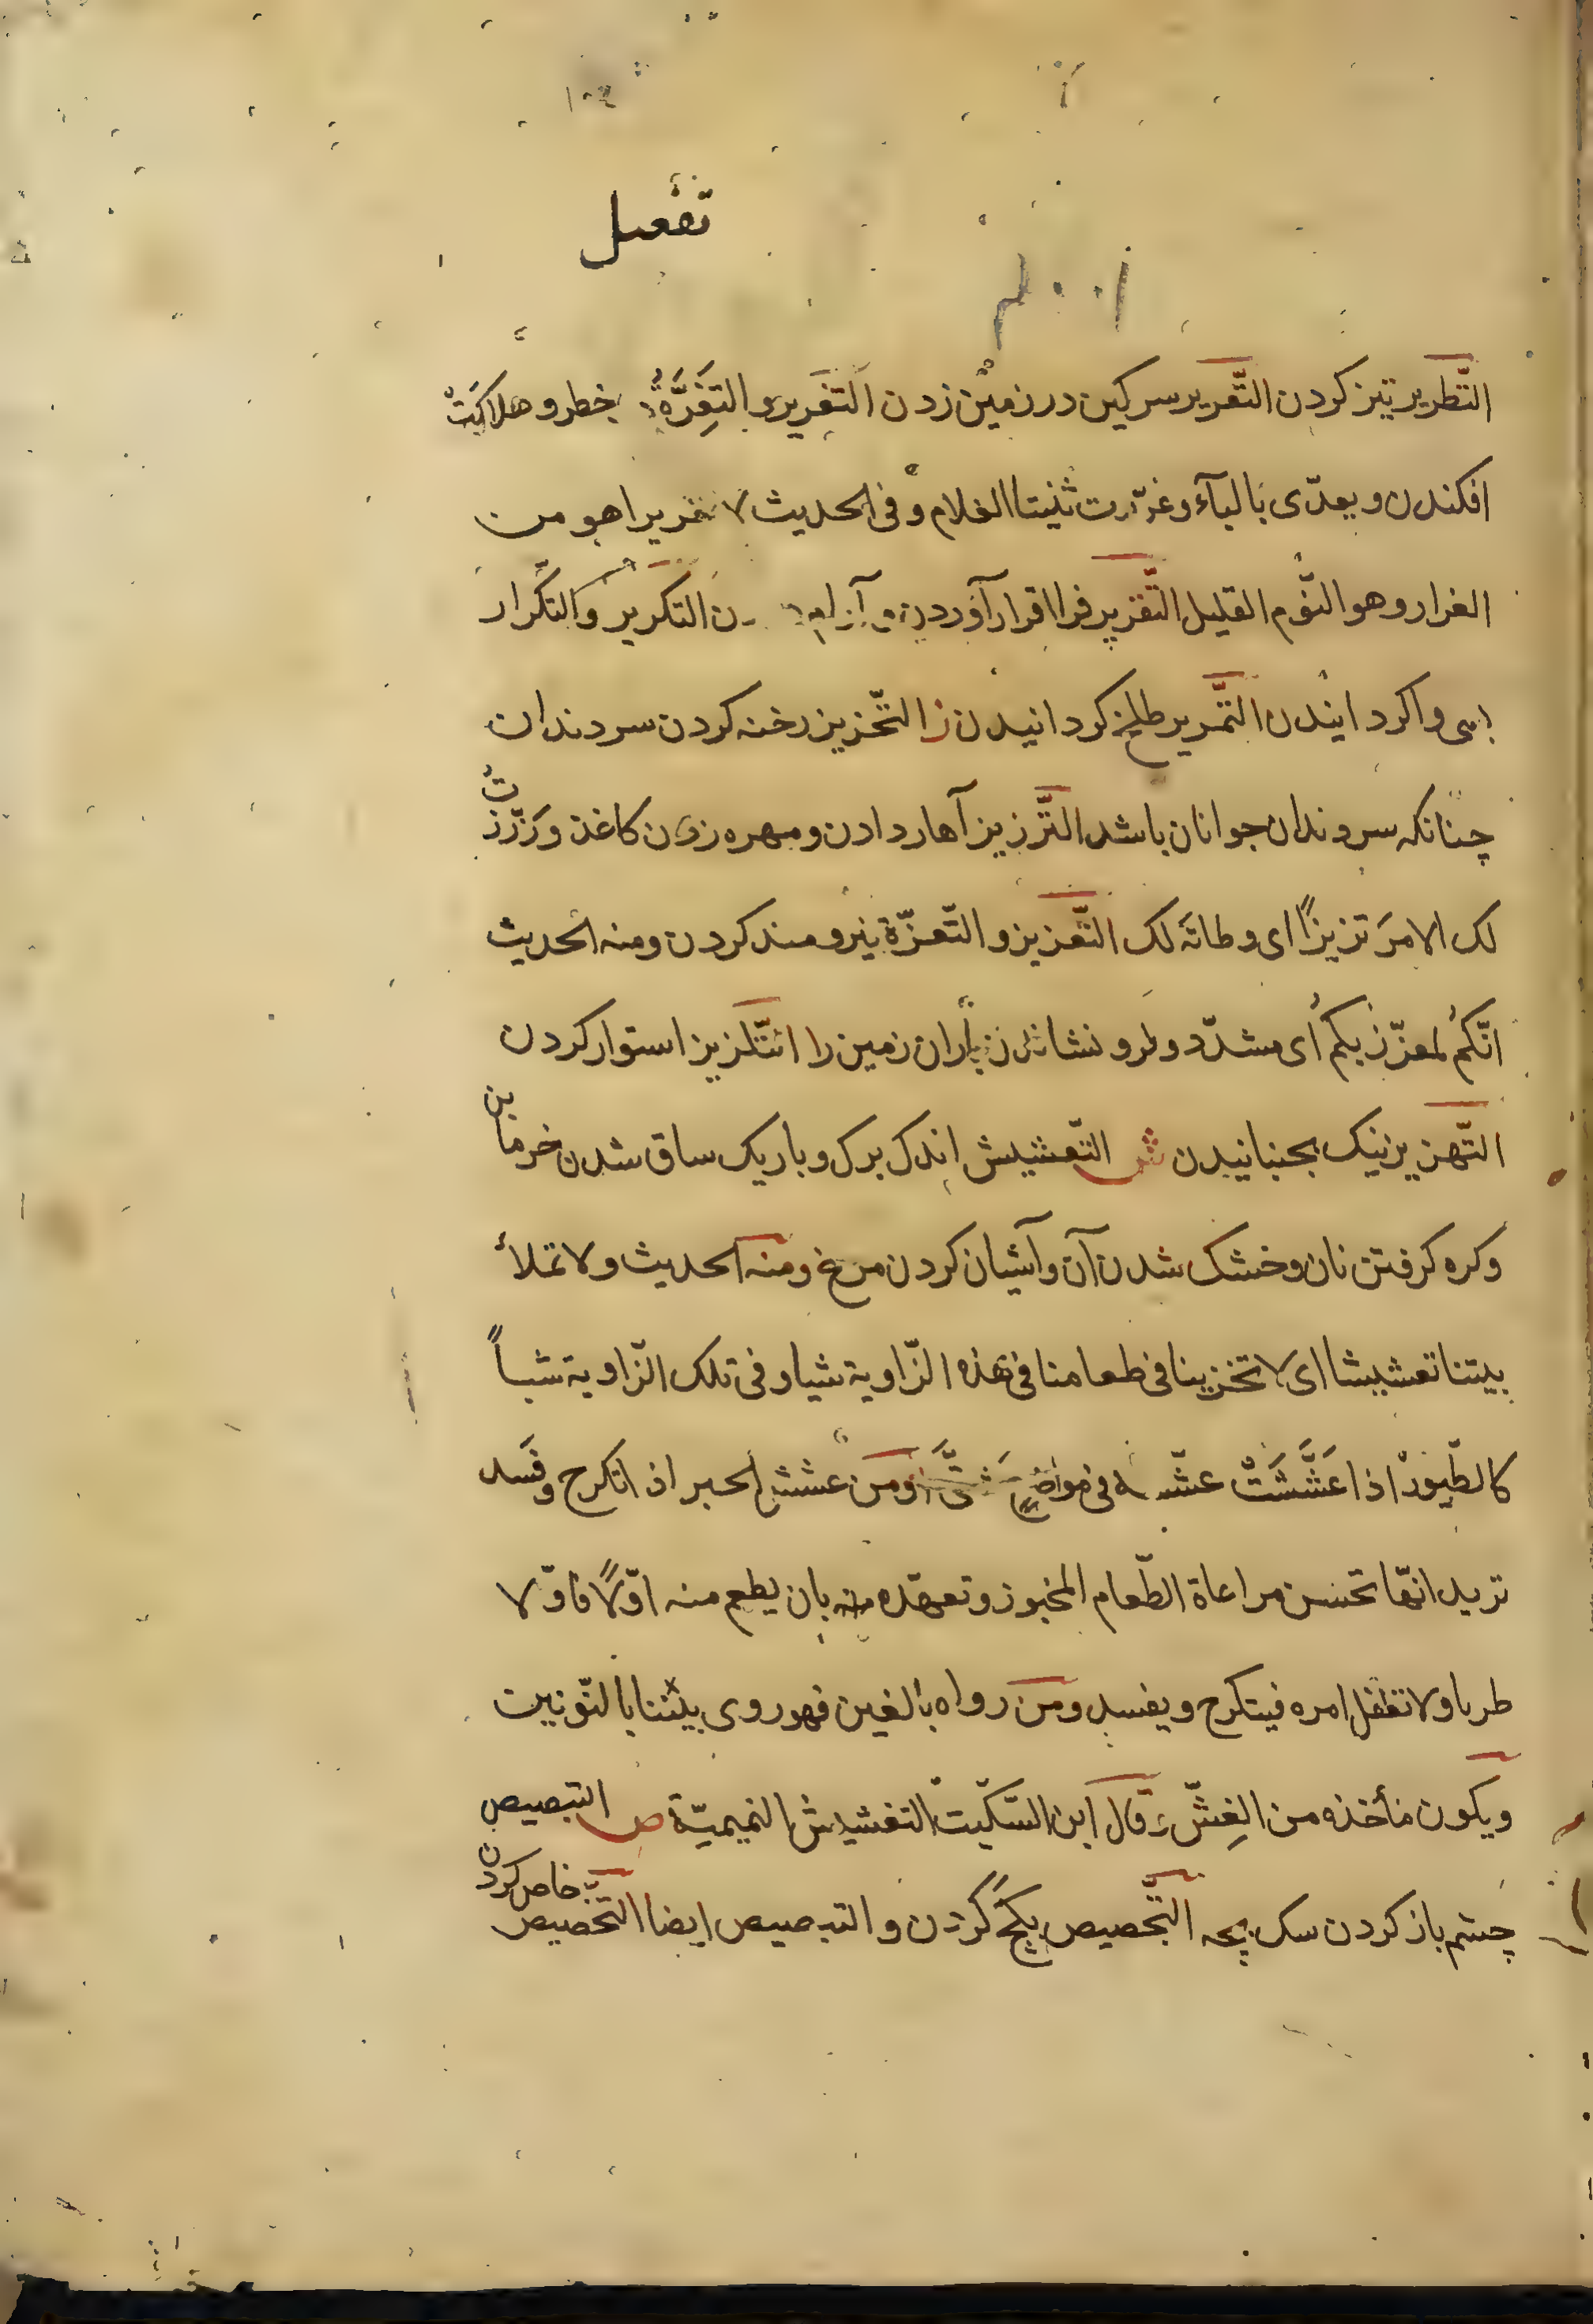 تفعیل
التّطریر تیز کردن التّعریر سرکین در زمین زدن التغریر و التَغِرَّةُ بخطر و هلاکت
افکندن و یعدّی بالبآء و غرّرت ثنیتا الغلام و فی الحدیث لا تغریرا هو من
الغرار و هو النّوم القلیل التّقریر فرا اقرار آوردن و التکریر و التکرار
واکردانیدن التّمریر طلخ کردانیدن ز التّحزیز رخنه کردن سر دندان
چنانکه سر دندان جوانان باشد التّرزیز آهار دادن و مهره زدن کاغذ و رَزّزتُ
لک الامرَ ترزیزًا ای وطاته لک التّعزیز و التّعزّة نیرومند کردن و منه الحدیث
انّکم لمعزّز بکم ای مشدّد و فرو نشاندن باران زمین را التّلزیز استوار کردن
التّهزیز نیک بجنبانیدن ش التّعشیش اندک برک و باریک ساق شدن خرمابن
و کره کرفتن نان و خشک شدن آن و آشیان کردن مرغ و منه الحدیث و لا تملأ
بیتنا تعشیشا ای لا تخزینا فی طعامنا فی هذه الزّاویة شیا و فی تلک الزّاویة شیاً
کالطّیور اذا عَشَّشَتْ فی مواضع شتّی و من عشش الخبز اذا تکرج و فسد
ترید انّها تحسن مراعاة الطّعام المخبوز و تعهّده بان یطعم منه اوّلًا فاوّلا
طریا و لا تغفل امره فیتکرج و یفسد و من رواه بالغین فهو روی بیتنا بالنّونین
و یکون مأخذه من الغِشّ و قال ابن السّکّیت التغشیش النمیمیّة ص التبصیص
چشم باز کردن سک بچه التّجصیص بکچ کردن و التبصیص ایضا التّخصیص خاص کردن